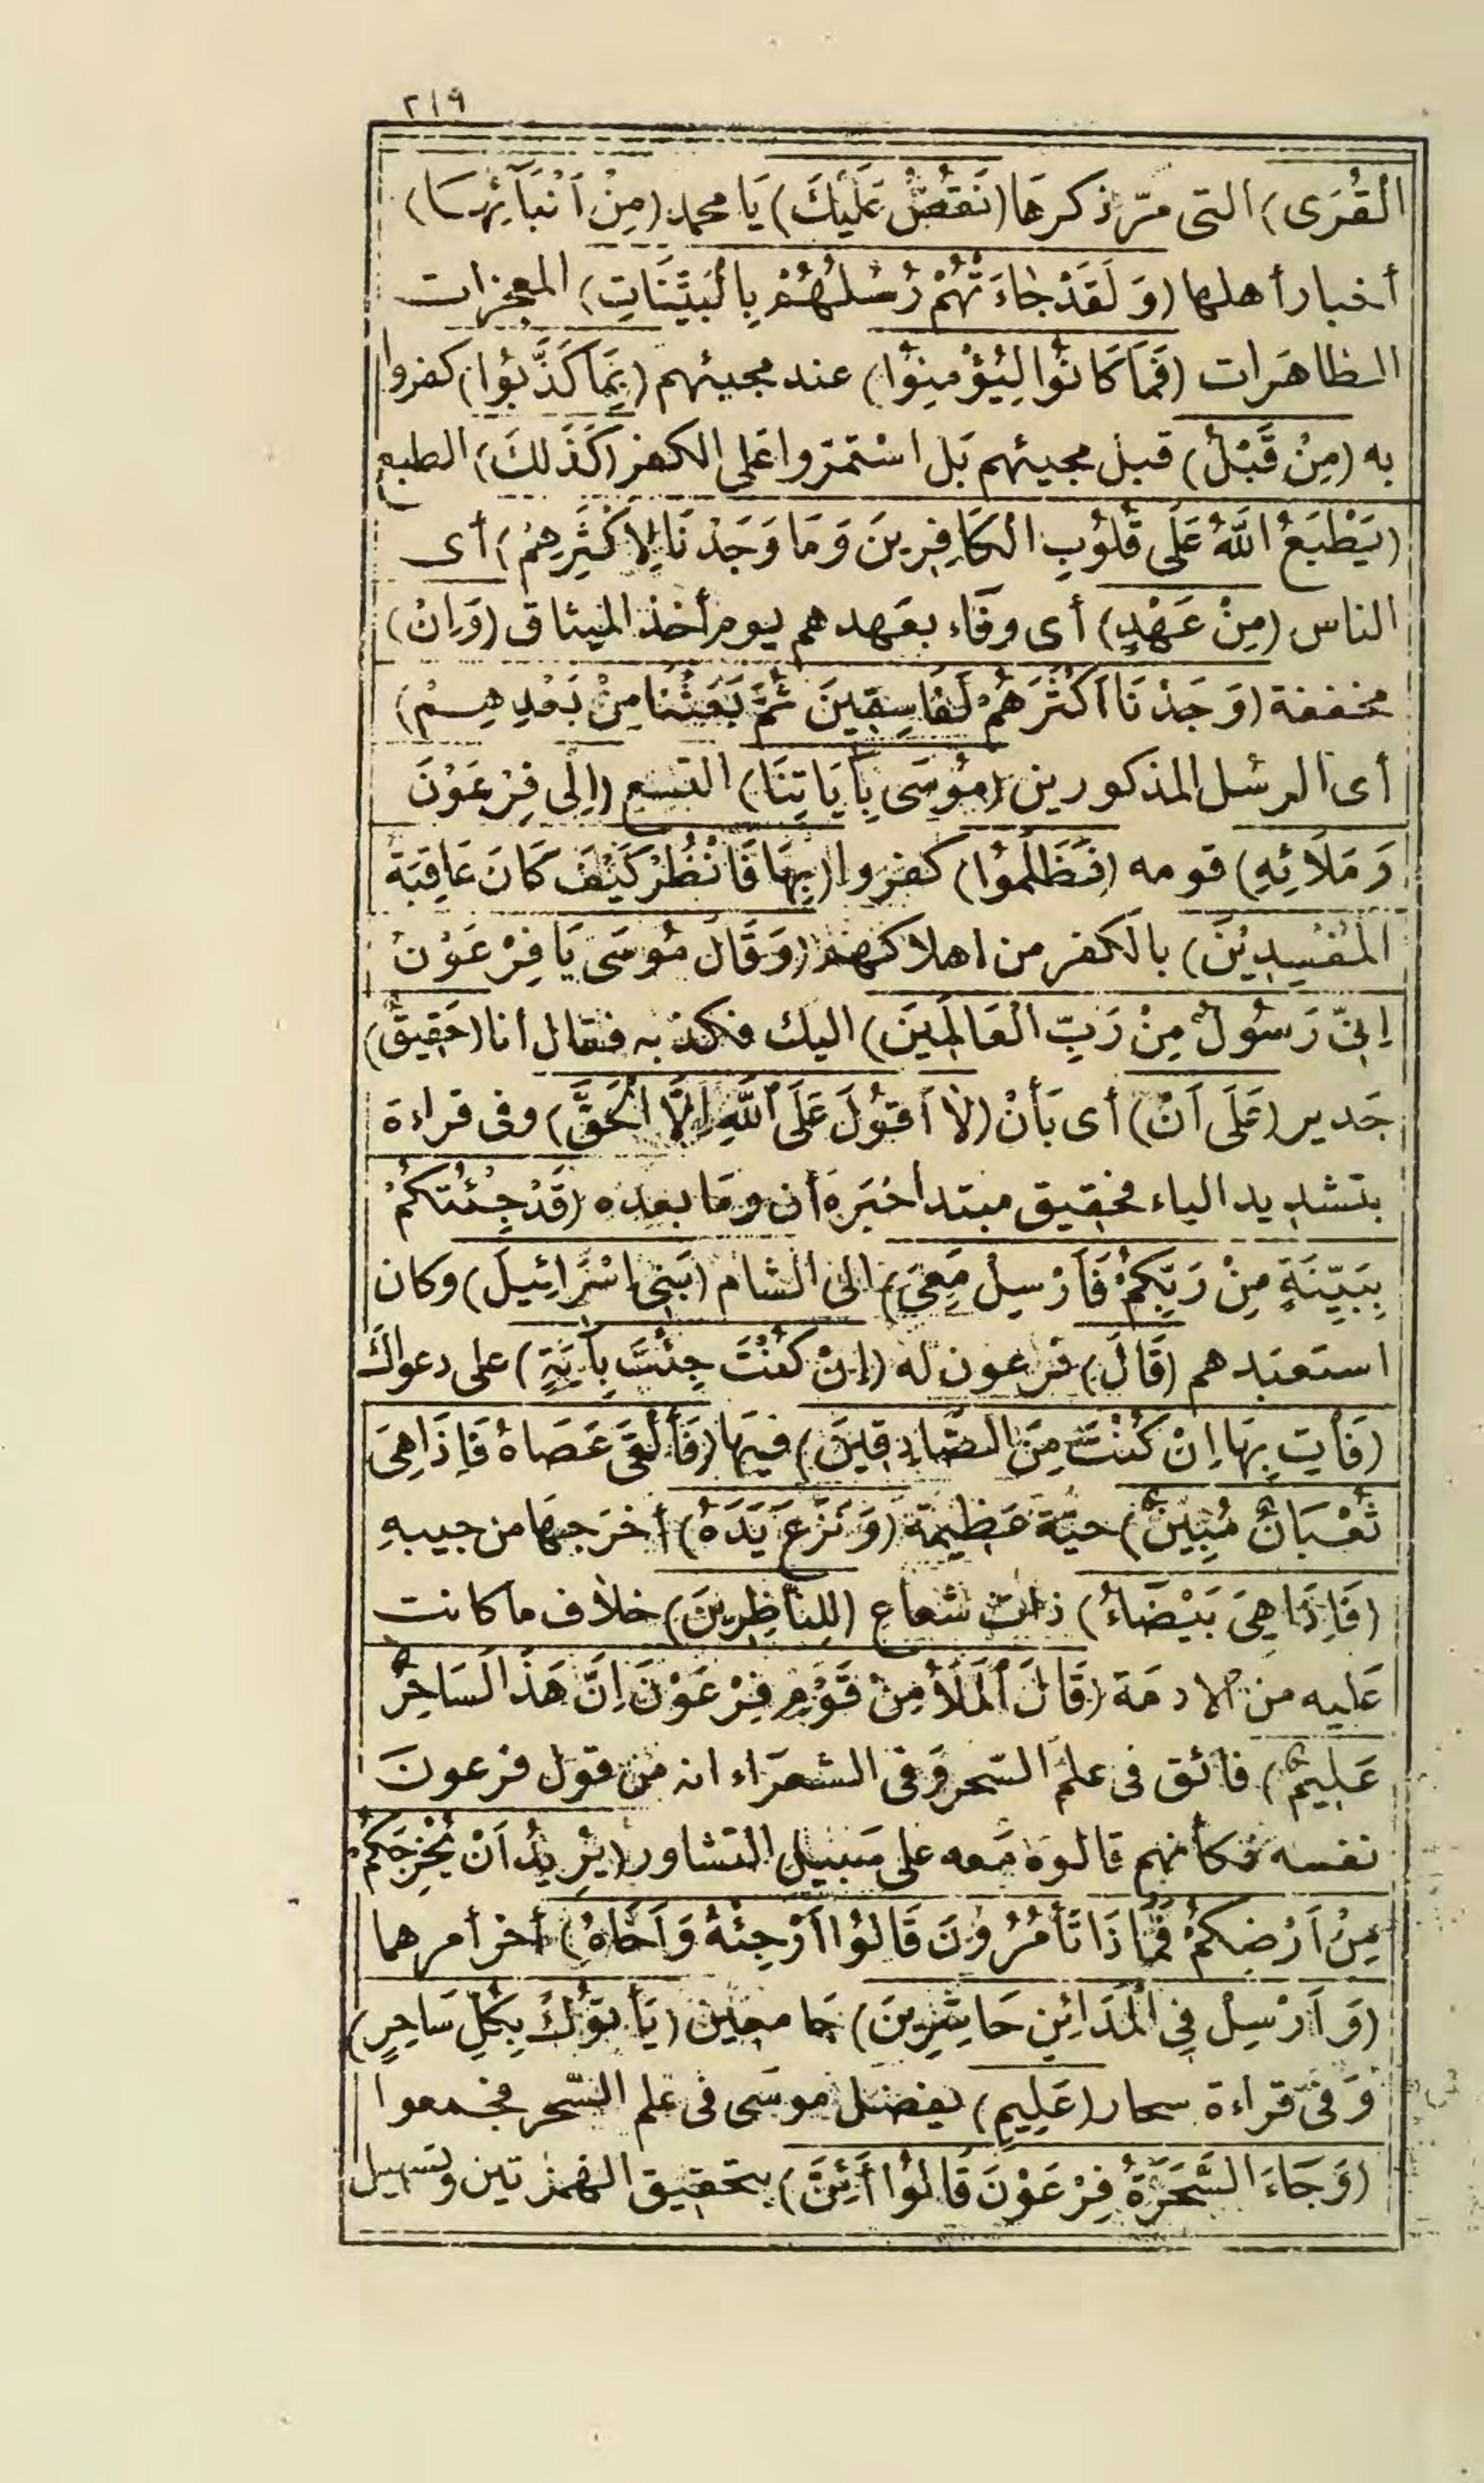 ٢١٩
الْقُرَى) التى مرّ ذكرهَا (نَقُصُّ عَلَيْكَ) يَا محمد (مِنْ اَنْبَآئِهَا)
أخبار أهلها (وَلَقَدْ جَاءَتْهُمْ رُسُلُهُمْ بِالْبَيِّنَاتِ) المعجزات
الظاهَرات (فَمَا كَانُوْا لِيُؤْمِنُوْا) عند مجيئهم (بِمَا كَذَّبُوْا) كفروا
به (مِنْ قَبْلُ) قبل مجيئهم بَل اسْتمرّوا عَلى الكفر (كَذَلِكَ) الطبع
(يَطْبَعُ اللَّهُ عَلَى قُلُوْبِ الكَافِرِينَ وَمَا وَجَدْنَا لِاَكْثَرِهِمْ) أى
الناس (مِنْ عَهْدٍ) أى وفَاء بعَهدهم يوم أخذ الميثاق (وَاِنْ)
مخففة (وَجَدْنَا اَكْثَرَهُمْ لَفَاسِقِينَ ثُمَّ بَعَثْنَا مِنْ بَعْدِهِمْ)
أى الرسُل المذكورين (مُوسَى بِآيَاتِنَا) التسع (اِلَى فِرْعَوْنَ
وَمَلَائِهِ) قومه (فَظَلَمُوْا) كفروا (بِهَا فَانْظُرْ كَيْفَ كَانَ عَاقِبَةُ
الْمُفْسِدِيْنَ) بالكفر من اهلاكهم (وَقَالَ مُوسَى يَا فِرْعَوْنُ
اِنِّى رَسُولٌ مِنْ رَبِّ الْعَالَمِينَ) اليك فكذبه فقال أنا (حَقِيقٌ)
جَدير (عَلَى اَنْ) أى بَأنْ (لَا اَقُولَ عَلَى اللَّهِ اِلَّا الْحَقَّ) وفى قراءة
بتشديد الياء فحقيق مبتدأ خبَره أن ومَا بعده (قَدْ جِئْتُكُمْ
بِبَيِّنَةٍ مِنْ رَبِّكُمْ فَاَرْسِلْ مَعِىَ) الى الشام (بَنِى اِسْرَائِيلَ) وكان
استعبَدهم (قَالَ) فرْعون له (إنْ كُنْتَ جِئْتَ بِآيَةٍ) على دعواك
(فَأتِ بِهَا اِنْ كُنْتَ مِنَ الصَّادِقِينَ) فيهَا (فَاَلْقَى عَصَاهُ فَاِذَا هِىَ
ثُعْبَانٌ مُبِينٌ) حيّة عَظيمة (وَنَزَعَ يَدَهُ) أخرَجهَا من جيبهِ
(فَاِذَا هِىَ بَيْضَاءُ) ذات شعاع (لِلنَّاظِرِينَ) خلَاف ما كانت
عَليه من الادمَة (قَالَ الْمَلَأُ مِنْ قَوْمِ فِرْعَوْنَ اِنَّ هَذَا لَسَاحِرٌ
عَلِيمٌ) فائق فى علم السّحر وَفى الشعرَاء انه من قول فرعونَ
نفسه فكأنهم قالوهَ مَعه على سَبيل التشاور (يُرِيدُ اَنْ يُخْرِجَكُمْ
مِنْ اَرْضِكُمْ فَمَاذَا تَأمُرُوْنَ قَالُوْا اَرْجِئْهُ وَاَخَاهُ) أخر أمرهما
(وَاَرْسِلْ فِى الْمَدَائِنِ حَاشِرِينَ) جَامعين (يَأتُوْكَ بِكُلِّ سَاحِرٍ)
وَفى قراءة سحار (عَلِيمٍ) يفضل موسَى فى عَلم السّحر فجمعوا
(وَجَاءَ السَّحَرَةُ فِرْعَوْنَ قَالُوْا أَئِنَّ) بتحقيق الهمزتين وتسهيل